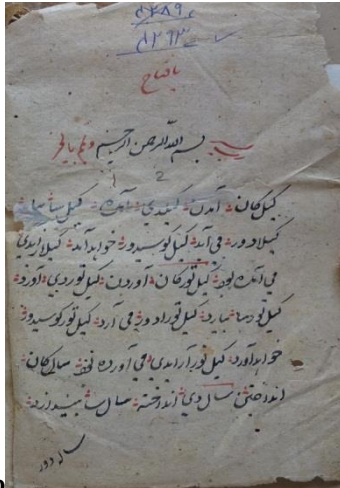 یا فتاح
بسم الله الرحمن الرحیم وتمم بالخیر
1 2
کیل کان آمدن کیلدی آمده کیل سا بیاید
کیلادور می آید کیل کوسیدور خواهد آمد کیلار ایدی
می آمده بود کیلتورکان آوردن کیلتوردی آورد
کیلتورسا بیارد کیلتورادور می آرد کیلتورکوسیدور
خواهد آورد کیلتورار ایدی می آورده سالکان
انداختن سالدی انداخته سالسا بیندازد
سالادور